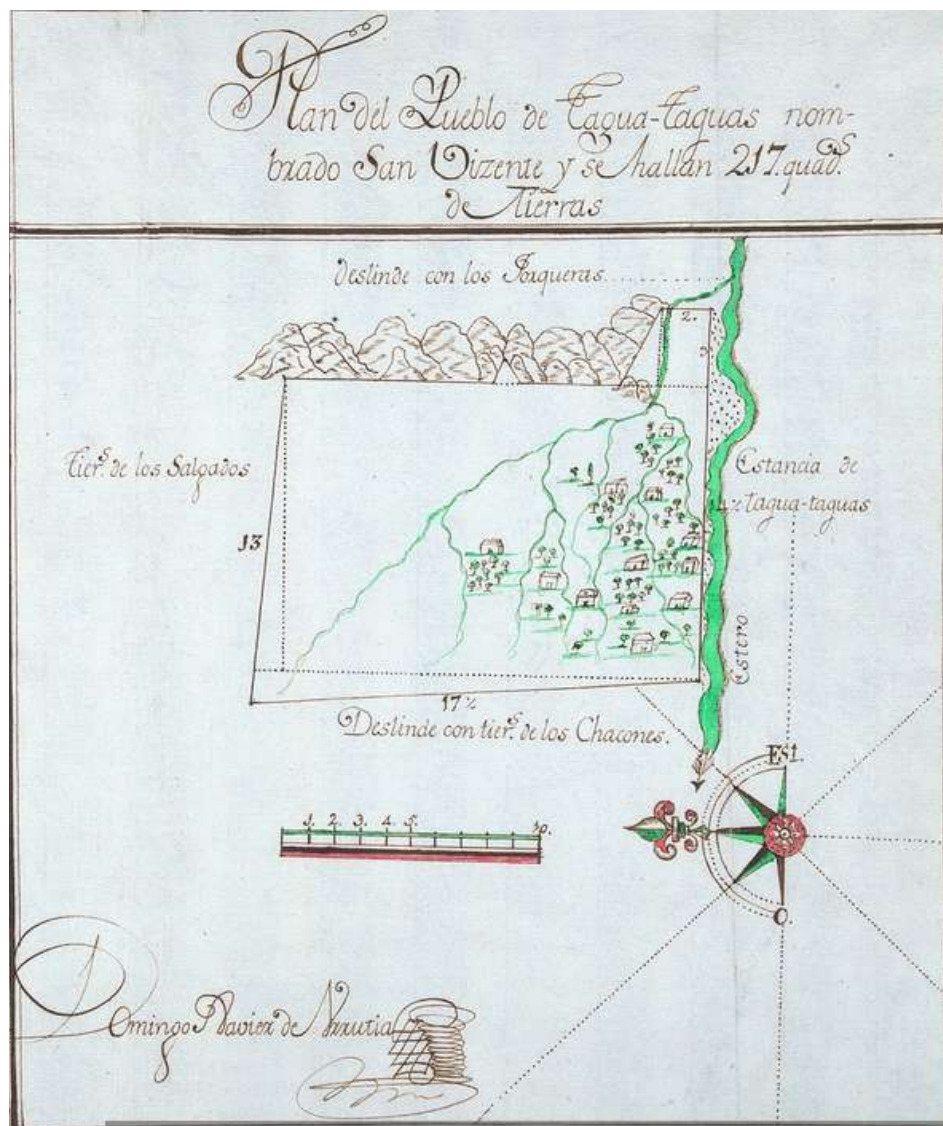 Plan del Pueblo de Tagua-Taguas nom-
brado San Vizente y se hallan 217. quad.s
de Tierras
deslinde con los Porqueras
2.
Tier.s de los Salgados
Estancia de
tagua-taguas
13
Estero
17½
Deslinde con tier.s de los Chacones.
ESt.
1. 2. 3. 4. 5. 10.
O.
Domingo Xavier de Urrutia